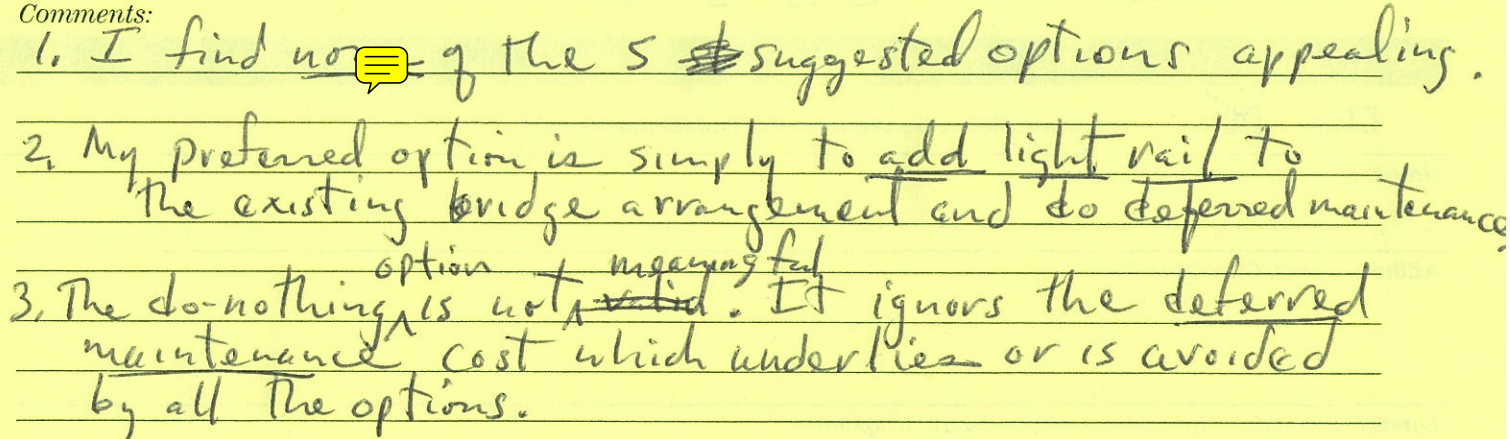 Comments:
1. I find none of the 5 suggested options appealing.
2. My preferred option is simply to add light rail to
the existing bridge arrangement and do deferred maintenance.
3. The do-nothing option is not meaningful. It ignors the deferred
maintenance cost which underlies or is avoided
by all the options.